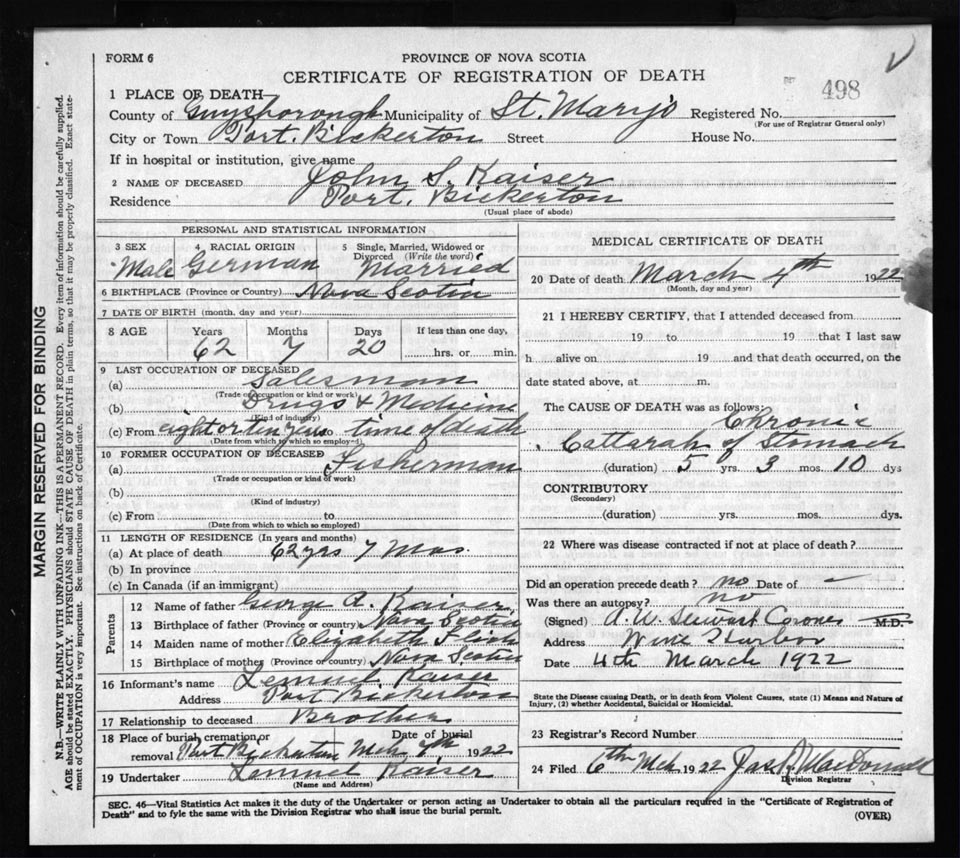 FORM 6
PROVINCE OF NOVA SCOTIA
CERTIFICATE OF REGISTRATION OF DEATH
498
1 PLACE OF DEATH
County of Guysborough Municipality of St. Marys Registered No.
(For use of Registrar General only)
City or Town Port. Bickerton Street House No.
If in hospital or institution, give name
2 NAME OF DECEASED John S. Kaiser
Residence Port. Bickerton
(Usual place of abode)
PERSONAL AND STATISTICAL INFORMATION
3 SEX 4 RACIAL ORIGIN 5 Single, Married, Widowed or
Divorced (Write the word)
Male German Married
6 BIRTHPLACE (Province or Country) Nova Scotia
7 DATE OF BIRTH (month, day and year)
8 AGE Years Months Days If less than one day,
62 7 20 hrs. or min.
9 LAST OCCUPATION OF DECEASED
(a) Salesman
(Trade or occupation or kind of work)
(b) Drugs & Medicine
(Kind of industry)
(c) From eight or ten years to time of death
(Date from which to which so employed)
10 FORMER OCCUPATION OF DECEASED
(a) Fisherman
(Trade or occupation or kind of work)
(b)
(Kind of industry)
(c) From to
(Date from which to which so employed)
11 LENGTH OF RESIDENCE (In years and months)
(a) At place of death 62 yrs 7 Mos.
(b) In province
(c) In Canada (if an immigrant)
Parents
12 Name of father George A. Kaiser
13 Birthplace of father (Province or country) Nova Scotia
14 Maiden name of mother Elizabeth
15 Birthplace of mother (Province or country) Nova Scotia
16 Informant's name Lemuel Kaiser
Address Port Bickerton
17 Relationship to deceased Brother
18 Place of burial, cremation or Date of burial
removal Port Bickerton Mch 7th 1922
19 Undertaker Lemuel Kaiser
(Name and Address)
MEDICAL CERTIFICATE OF DEATH
20 Date of death March 4th 1922
(Month, day and year)
21 I HEREBY CERTIFY, that I attended deceased from
19 to 19 that I last saw
h alive on 19 and that death occurred, on the
date stated above, at m.
The CAUSE OF DEATH was as follows:
Chronic
Cattarah of Stomach
(duration) 5 yrs. 3 mos. 10 dys
CONTRIBUTORY
(Secondary)
(duration) yrs. mos. dys.
22 Where was disease contracted if not at place of death?
Did an operation precede death? no Date of –
Was there an autopsy? no
(Signed) A. W. Stewart Coroner M.D.
Address Wine Harbor
Date 4th March 1922
State the Disease causing Death, or in death from Violent Causes, state (1) Means and Nature of
Injury, (2) whether Accidental, Suicidal or Homicidal.
23 Registrar's Record Number
24 Filed 6th Mch 1922 Jas. MacDonald
Division Registrar
SEC. 46—Vital Statistics Act makes it the duty of the Undertaker or person acting as Undertaker to obtain all the particulars required in the "Certificate of Registration of
Death" and to fyle the same with the Division Registrar who shall issue the burial permit.
(OVER)
MARGIN RESERVED FOR BINDING
N.B.—WRITE PLAINLY WITH UNFADING INK—THIS IS A PERMANENT RECORD. Every item of information should be carefully supplied.
AGE should be stated EXACTLY. PHYSICIANS should STATE CAUSE OF DEATH in plain terms, so that it may be properly classified. Exact state-
ment of OCCUPATION is very important. See instructions on back of Certificate.